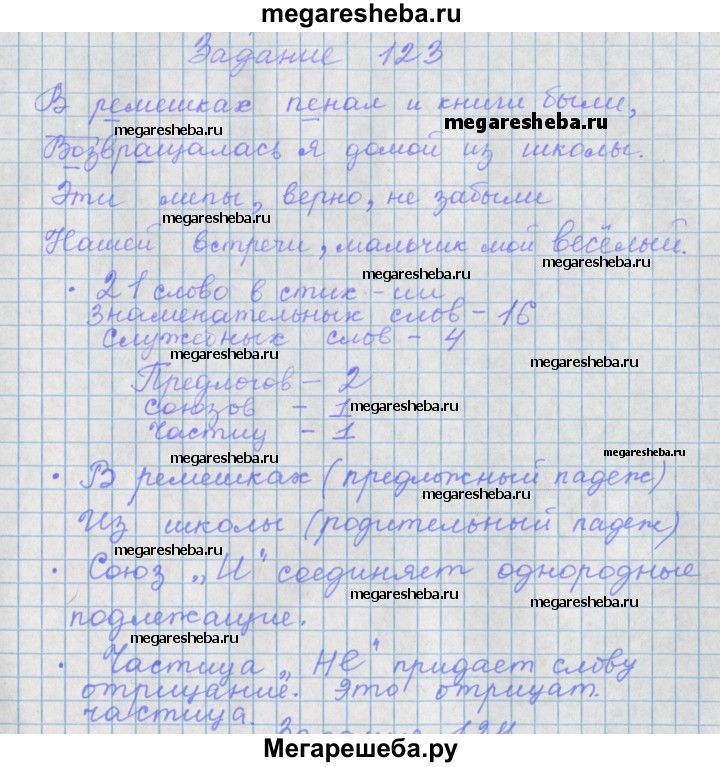 megaresheba.ru
Задание 123
В ремешках пенал и книги были,
megaresheba.ru
megaresheba.ru
Возвращалась я домой из школы.
Эти липы, верно, не забыли
megaresheba.ru
Нашей встречи, мальчик мой весёлый.
megaresheba.ru
megaresheba.ru
• 21 слово в стих-ии
Знаменательных слов - 16
Служебных слов - 4
megaresheba.ru
megaresheba.ru
Предлогов - 2
Союзов - 1
megaresheba.ru
Частиц - 1
megaresheba.ru
megaresheba.ru
• В ремешках (предложный падеж)
megaresheba.ru
Из школы (родительный падеж)
megaresheba.ru
• Союз „И" соединяет однородные
megaresheba.ru
подлежащие.
megaresheba.ru
megaresheba.ru
• Частица „НЕ" придает слову
отрицание. Это отрицат.
megaresheba.ru
частица.
Задание 124
Мегарешеба.ру